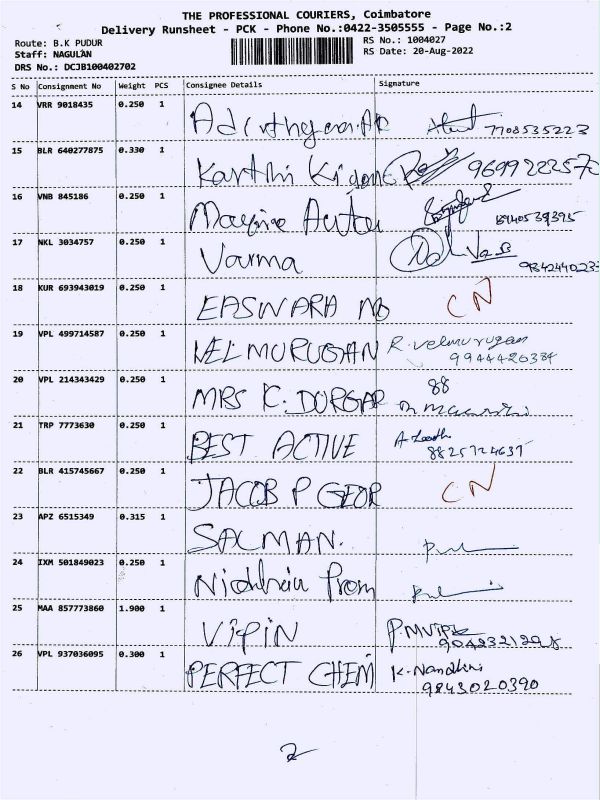 THE PROFESSIONAL COURIERS, Coimbatore
Delivery Runsheet - PCK - Phone No.:0422-3505555 - Page No.:2
Route: B.K PUDUR RS No.: 1004027
Staff: NAGULAN RS Date: 20-Aug-2022
DRS No.: DCJB100402702
S No Consignment No Weight PCS Consignee Details Signature
14 VRR 9018435 0.250 1
7708535223
15 BLR 640277875 0.330 1
Karthi
16 VNB 845186 0.250 1
8940539395
17 NKL 3034757 0.250 1
Varma
18 KUR 693943019 0.250 1
EASWARA CN
19 VPL 499714587 0.250 1
VELMURUGAN R. Velmurugan
9944420384
20 VPL 214343429 0.250 1
88
MRS K. DURGAR
21 TRP 7773630 0.250 1
BEST ACTIVE
8825724637
22 BLR 415745667 0.250 1
JACOB P GEOR CN
23 APZ 6515349 0.315 1
SALMAN.
24 IXM 501849023 0.250 1
Prom
25 MAA 857773860 1.900 1
VIPIN
26 VPL 937036095 0.300 1
PERFECT CHEM K. Nandhini
9843020390
2